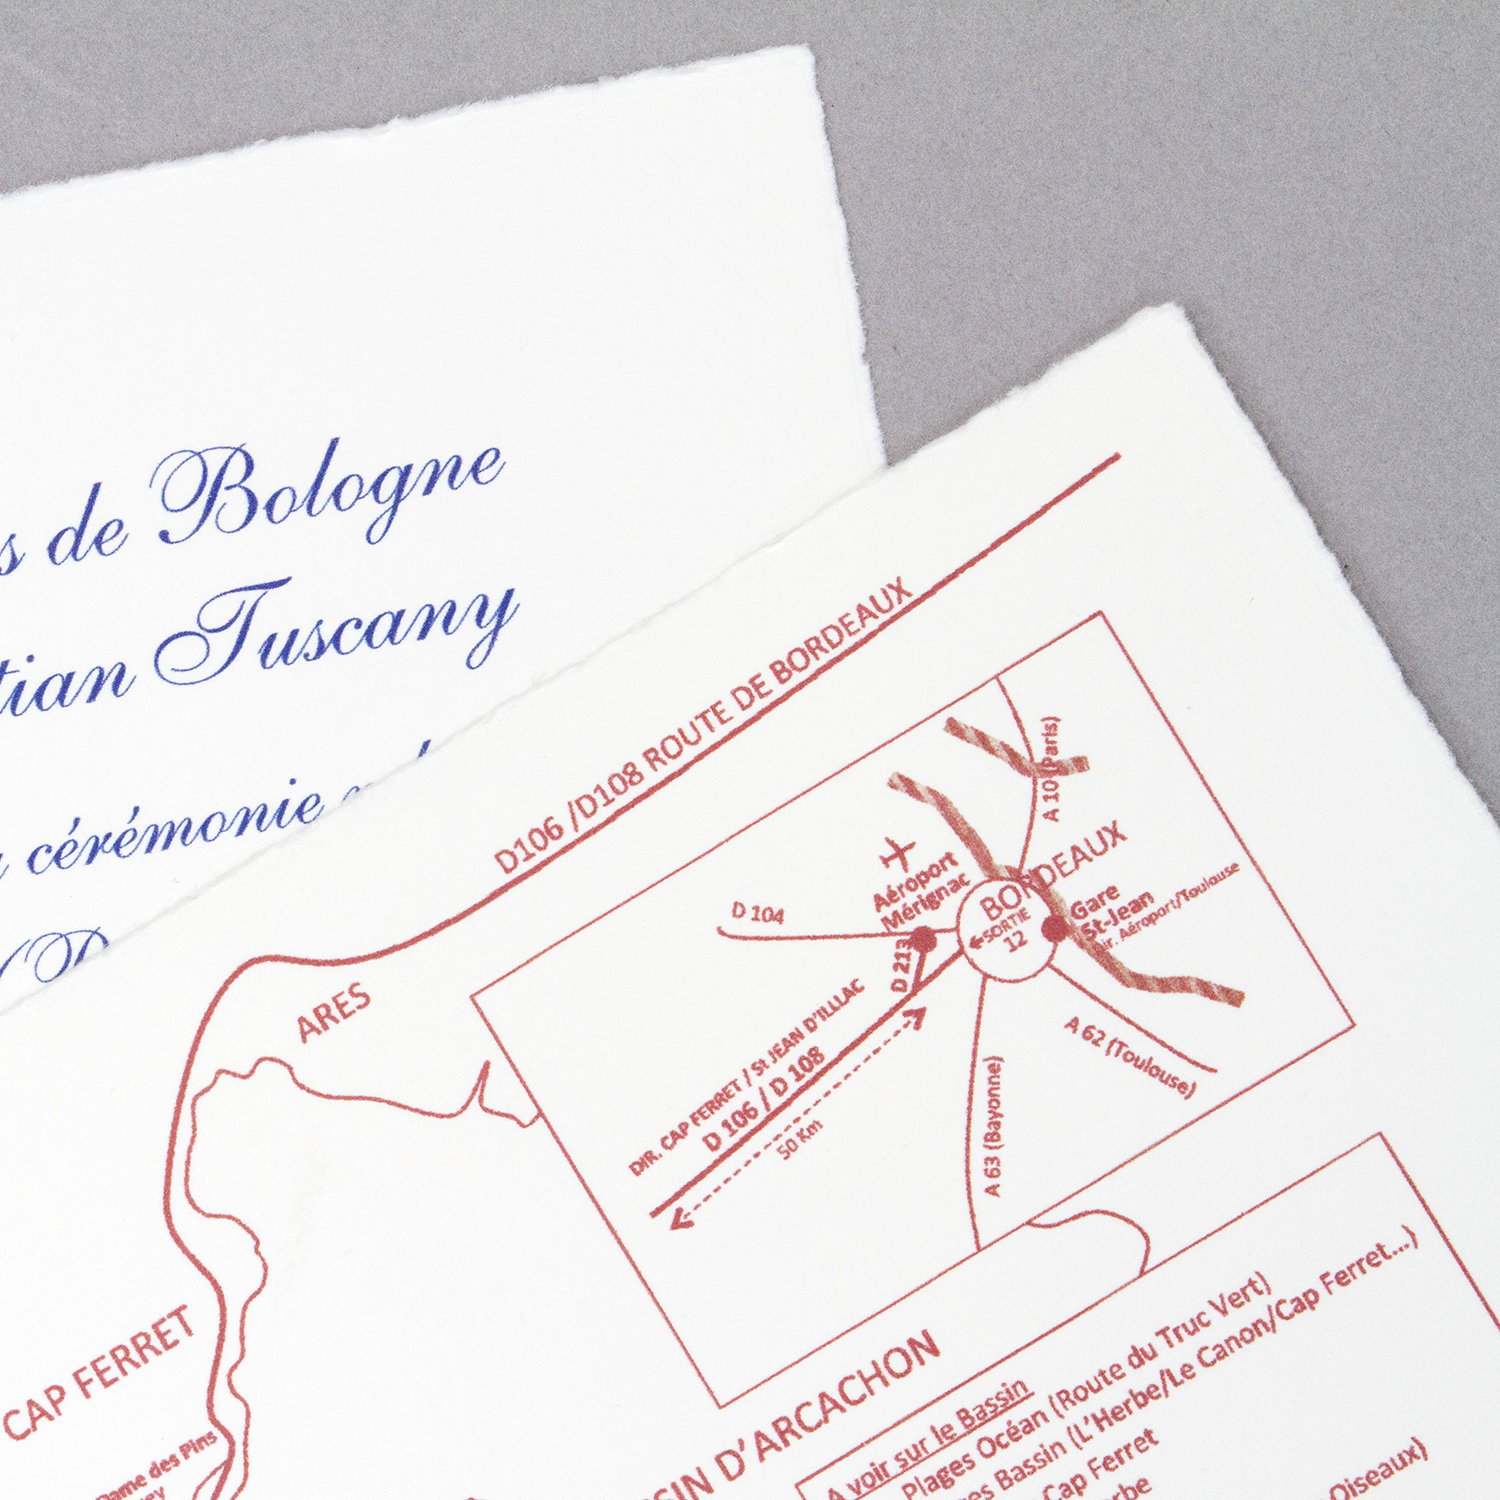 de Bologne
Tuscany
cérémonie
D106 /D108 ROUTE DE BORDEAUX
A 10 (Paris)
BORDEAUX
Aéroport
Mérignac
D 104
SORTIE
12
Gare
St-Jean
Dir. Aéroport/Toulouse
D 213
ARES
DIR. CAP FERRET / St JEAN D'ILLLAC
D 106 / D 108
50 Km
A 62 (Toulouse)
A 63 (Bayonne)
CAP FERRET
Dame des Pins
D'ARCACHON
A voir sur le Bassin
Plages Océan (Route du Truc Vert)
Bassin (L'Herbe/Le Canon/Cap Ferret...)
Cap Ferret
Oiseaux)